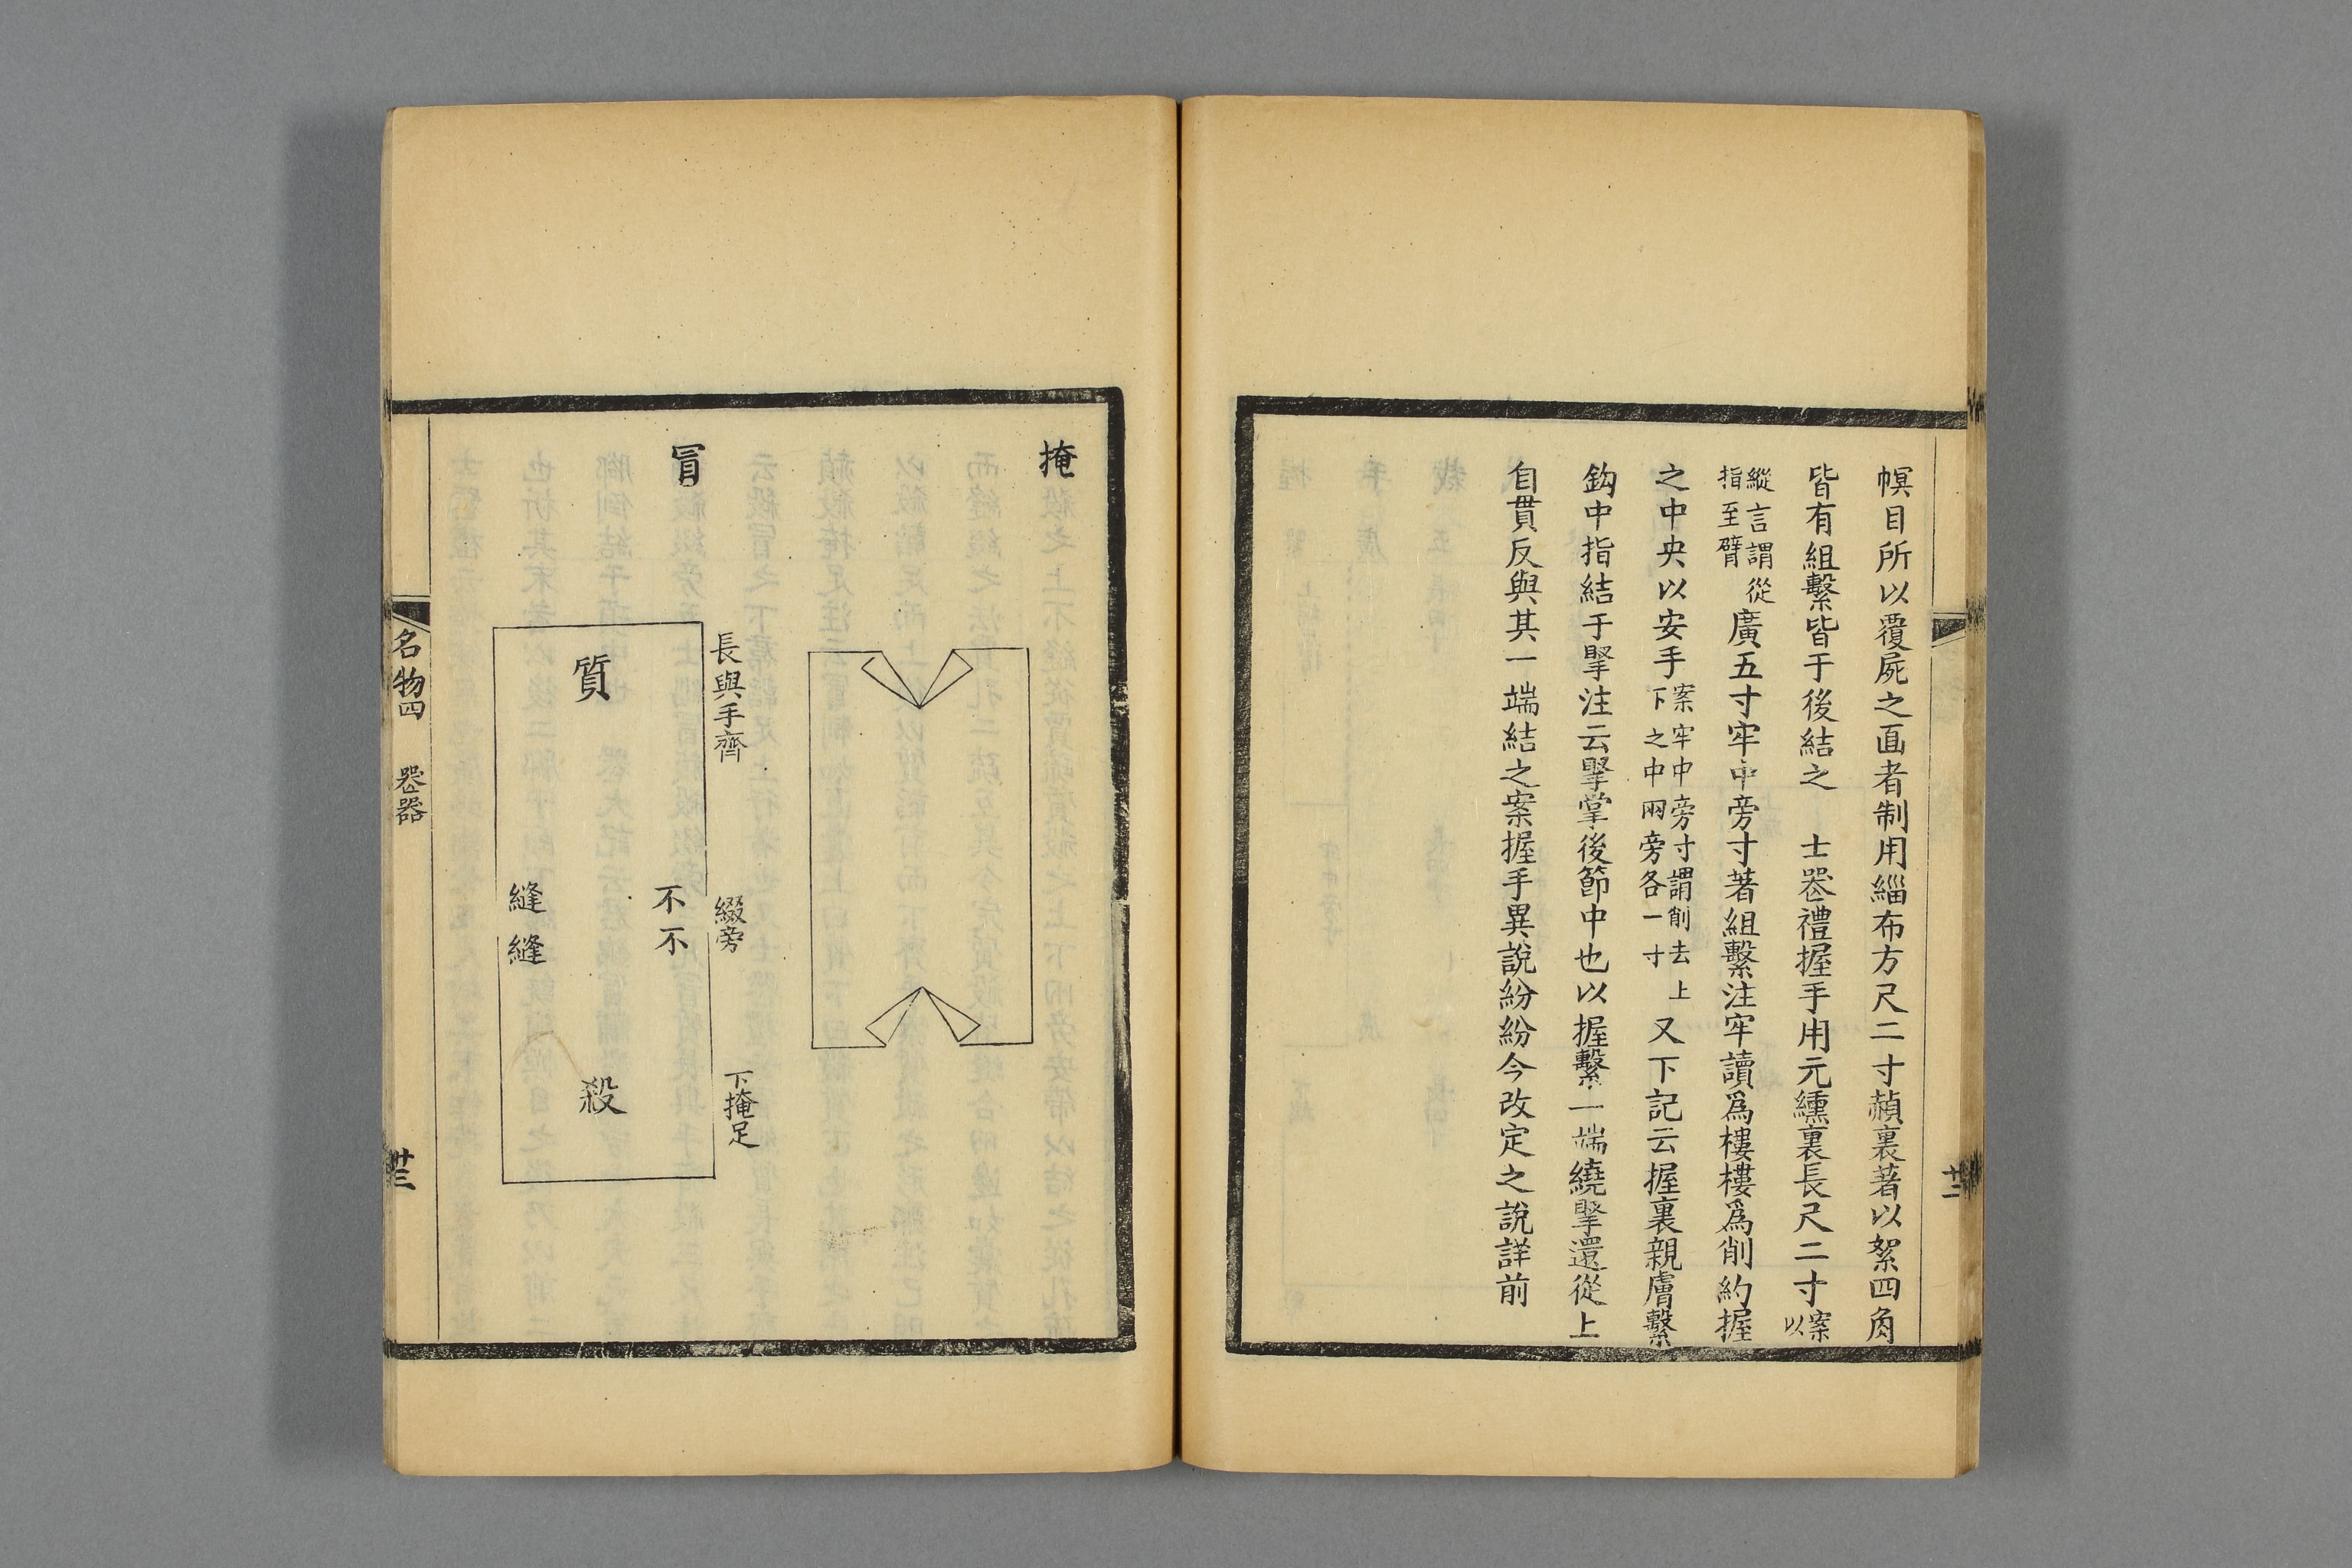 幎目所以覆屍之面者制用緇布方尺二寸赬裏著以絮四角
皆有組繫皆于後結之　士喪禮握手用元纁裏長尺二寸案以
縱言謂從
指至臂
廣五寸牢中旁寸著組繫注牢讀爲樓樓爲削約握
之中央以安手
案牢中旁寸謂削去上
下之中兩旁各一寸
又下記云握裏親膚繫
鉤中指結于掔注云掔掌後節中也以握繫一端繞掔還從上
自貫反與其一端結之案握手異說紛紛今改定之說詳前
廿二
掩
冒
長與手齊
綴旁
下掩足
質
不
不
縫
縫
殺
名物四　喪器
廿三